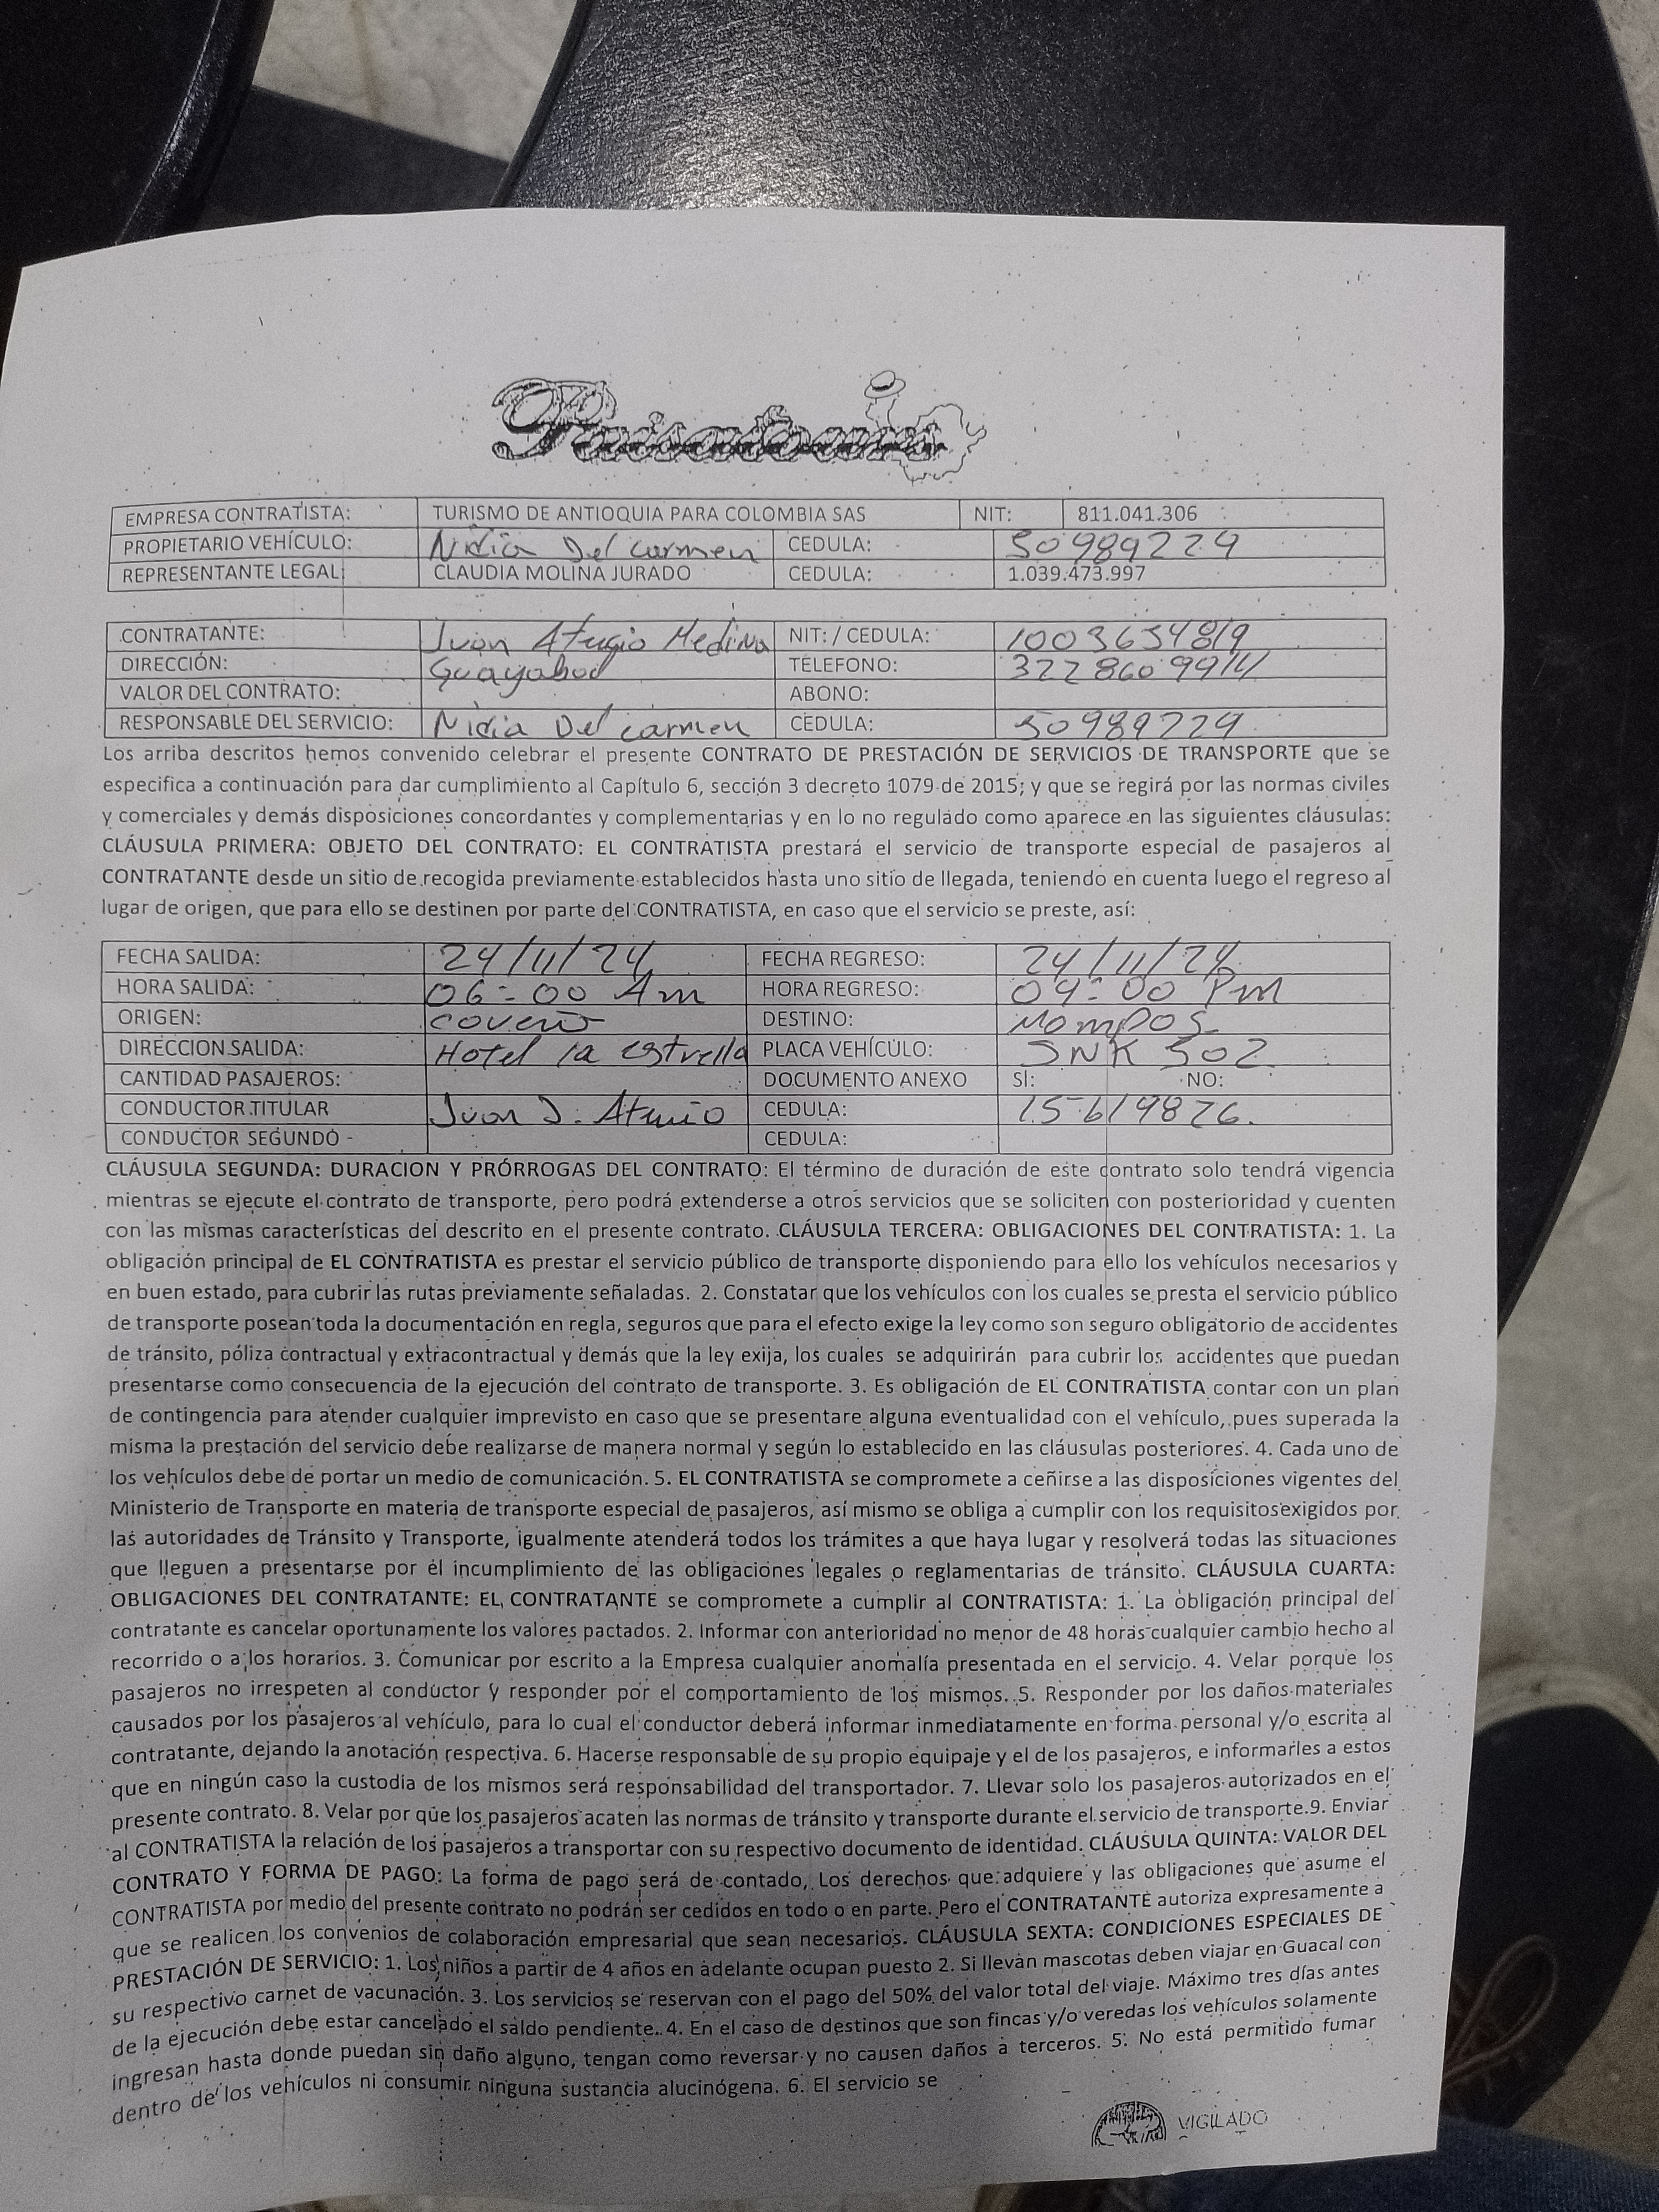 Paisatours
EMPRESA CONTRATISTA: TURISMO DE ANTIOQUIA PARA COLOMBIA SAS NIT: 811.041.306
PROPIETARIO VEHÍCULO: Nidia Del carmen CEDULA: 50989229
REPRESENTANTE LEGAL CLAUDIA MOLINA JURADO CEDULA: 1.039.473.997
CONTRATANTE: Juan Medina NIT: / CEDULA: 1003634819
DIRECCIÓN: TÉLEFONO: 322 860 9914
VALOR DEL CONTRATO: ABONO:
RESPONSABLE DEL SERVICIO: Nidia Del carmen CÉDULA: 50989229
Los arriba descritos hemos convenido celebrar el presente CONTRATO DE PRESTACIÓN DE SERVICIOS DE TRANSPORTE que se
especifica a continuación para dar cumplimiento al Capítulo 6, sección 3 decreto 1079 de 2015; y que se regirá por las normas civiles
y comerciales y demás disposiciones concordantes y complementarias y en lo no regulado como aparece en las siguientes cláusulas:
CLÁUSULA PRIMERA: OBJETO DEL CONTRATO: EL CONTRATISTA prestará el servicio de transporte especial de pasajeros al
CONTRATANTE desde un sitio de recogida previamente establecidos hasta uno sitio de llegada, teniendo en cuenta luego el regreso al
lugar de origen, que para ello se destinen por parte del CONTRATISTA, en caso que el servicio se preste, así:
FECHA SALIDA: 24/11/24 FECHA REGRESO: 24/11/24
HORA SALIDA: 06:00 Am HORA REGRESO: 09:00 Pm
ORIGEN: coveñas DESTINO: Mompos
DIRECCION SALIDA: Hotel la estrella PLACA VEHÍCULO: SNK 502
CANTIDAD PASAJEROS: DOCUMENTO ANEXO SÌ: NO:
CONDUCTOR TITULAR Juan D. CEDULA: 15619826.
CONDUCTOR SEGUNDO CEDULA:
CLÁUSULA SEGUNDA: DURACION Y PRÓRROGAS DEL CONTRATO: El término de duración de este contrato solo tendrá vigencia
mientras se ejecute el contrato de transporte, pero podrá extenderse a otros servicios que se soliciten con posterioridad y cuenten
con las mismas características del descrito en el presente contrato. CLÁUSULA TERCERA: OBLIGACIONES DEL CONTRATISTA: 1. La
obligación principal de EL CONTRATISTA es prestar el servicio público de transporte disponiendo para ello los vehículos necesarios y
en buen estado, para cubrir las rutas previamente señaladas. 2. Constatar que los vehículos con los cuales se presta el servicio público
de transporte posean toda la documentación en regla, seguros que para el efecto exige la ley como son seguro obligatorio de accidentes
de tránsito, póliza contractual y extracontractual y demás que la ley exija, los cuales se adquirirán para cubrir los accidentes que puedan
presentarse como consecuencia de la ejecución del contrato de transporte. 3. Es obligación de EL CONTRATISTA contar con un plan
de contingencia para atender cualquier imprevisto en caso que se presentare alguna eventualidad con el vehículo, pues superada la
misma la prestación del servicio debe realizarse de manera normal y según lo establecido en las cláusulas posteriores. 4. Cada uno de
los vehículos debe de portar un medio de comunicación. 5. EL CONTRATISTA se compromete a ceñirse a las disposiciones vigentes del
Ministerio de Transporte en materia de transporte especial de pasajeros, así mismo se obliga a cumplir con los requisitos exigidos por
las autoridades de Tránsito y Transporte, igualmente atenderá todos los trámites a que haya lugar y resolverá todas las situaciones
que lleguen a presentarse por el incumplimiento de las obligaciones legales o reglamentarias de tránsito. CLÁUSULA CUARTA:
OBLIGACIONES DEL CONTRATANTE: EL CONTRATANTE se compromete a cumplir al CONTRATISTA: 1. La obligación principal del
contratante es cancelar oportunamente los valores pactados. 2. Informar con anterioridad no menor de 48 horas cualquier cambio hecho al
recorrido o a los horarios. 3. Comunicar por escrito a la Empresa cualquier anomalía presentada en el servicio. 4. Velar porque los
pasajeros no irrespeten al conductor y responder por el comportamiento de los mismos. 5. Responder por los daños materiales
causados por los pasajeros al vehículo, para lo cual el conductor deberá informar inmediatamente en forma personal y/o escrita al
contratante, dejando la anotación respectiva. 6. Hacerse responsable de su propio equipaje y el de los pasajeros, e informarles a estos
que en ningún caso la custodia de los mismos será responsabilidad del transportador. 7. Llevar solo los pasajeros autorizados en el
presente contrato. 8. Velar por que los pasajeros acaten las normas de tránsito y transporte durante el servicio de transporte.9. Enviar
al CONTRATISTA la relación de los pasajeros a transportar con su respectivo documento de identidad. CLÁUSULA QUINTA: VALOR DEL
CONTRATO Y FORMA DE PAGO: La forma de pago será de contado, Los derechos que adquiere y las obligaciones que asume el
CONTRATISTA por medio del presente contrato no podrán ser cedidos en todo o en parte. Pero el CONTRATANTE autoriza expresamente a
que se realicen los convenios de colaboración empresarial que sean necesarios. CLÁUSULA SEXTA: CONDICIONES ESPECIALES DE
PRESTACIÓN DE SERVICIO: 1. Los niños a partir de 4 años en adelante ocupan puesto 2. Si llevan mascotas deben viajar en Guacal con
su respectivo carnet de vacunación. 3. Los servicios se reservan con el pago del 50% del valor total del viaje. Máximo tres días antes
de la ejecución debe estar cancelado el saldo pendiente. 4. En el caso de destinos que son fincas y/o veredas los vehículos solamente
ingresan hasta donde puedan sin daño alguno, tengan como reversar y no causen daños a terceros. 5. No está permitido fumar
dentro de los vehículos ni consumir ninguna sustancia alucinógena. 6. El servicio se
VIGILADO